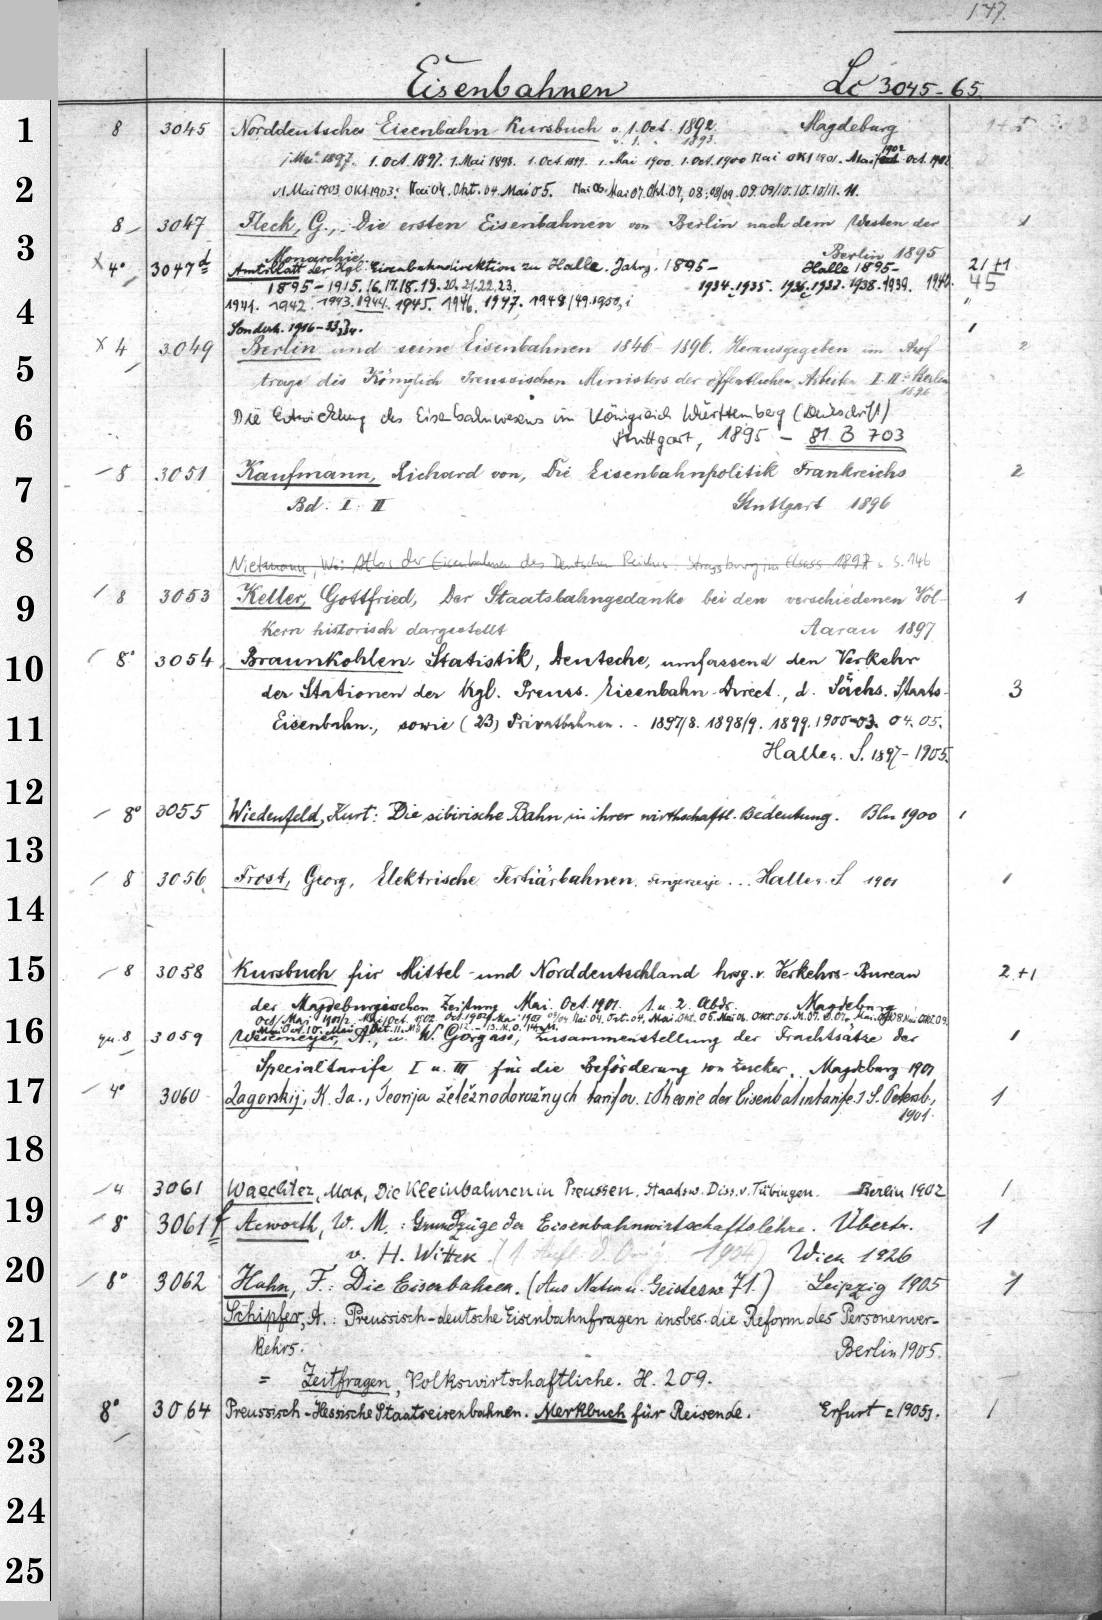 147.
Eisenbahnen Lc 3045-65.
1 8 3045 Norddeutsches Eisenbahn Kursbuch v. 1. Oct. 1892. Magdeburg
v. 1. " 1893.
1. Mai 1897. 1. Oct. 1897. 1. Mai 1898. 1. Oct. 1899. 1. Mai 1900. 1. Oct. 1900 Mai Okt 1901. Mai 1902 Oct. 1902
2 1 Mai 1903 Okt. 1903; Mai 04. Okt. 04. Mai 05. Mai 06. Mai 07. Okt. 07, 08. 08/09. 09. 09/10. 10. 10/11. 11.
8 3047 Fleck, G., Die ersten Eisenbahnen von Berlin nach dem Westen der 1
3 Monarchie. Berlin 1895
x 4° 3047 d Amtsblatt der Kgl. Eisenbahndirektion zu Halle. Jahrg. 1895- Halle 1895- 21+1
1895-1915. 16. 17. 18. 19. 20. 21. 22. 23. 1934. 1935. 1936. 1937. 1938. 1939. 1940. 45
4 1941. 1942. 1943. 1944. 1945. 1946. 1947. 1948/49. 1950,
Sonderh. 1916-33,34.
x 4 3049 Berlin und seine Eisenbahnen 1846-1896. Herausgegeben im Auf 2
5 trage des Königlich Preussischen Ministers der öffentlichen Arbeiten I. II. Berlin
1896
6 Die Entwicklung des Eisenbahnwesens im Königreich Württemberg (Denkschrift)
Stuttgart, 1895 - 81 B 703
7 8 3051 Kaufmann, Richard von, Die Eisenbahnpolitik Frankreichs 2
Bd. I. II Stuttgart 1896
8 Nietmann, W.: Atlas der Eisenbahnen des Deutschen Reiches. Strassburg im Elsass 1897 s. S. 146
9 8 3053 Keller, Gottfried, Der Staatsbahngedanke bei den verschiedenen Völ- 1
kern historisch dargestellt Aarau 1897
10 8° 3054 Braunkohlen Statistik, Deutsche, umfassend den Verkehr
der Stationen der Kgl. Preuss. Eisenbahn-Direct., d. Sächs. Staats- 3
11 Eisenbahn., sowie (23) Privatbahnen. 1897/8. 1898/9. 1899. 1900-03. 04. 05.
Halle a. S. 1897-1905.
12 8° 3055 Wiedenfeld, Kurt: Die sibirische Bahn in ihrer wirthschaftl. Bedeutung. Bln 1900 1
13 8 3056 Frost, Georg, Elektrische Tertiärbahnen. Fingerzeige ... Halle a. S 1901 1
14
15 8 3058 Kursbuch für Mittel- und Norddeutschland hrsg. v. Verkehrs-Bureau 2+1
der Magdeburgischen Zeitung Mai. Oct. 1901. 1. u. 2. Abdr. Magdeburg
16 qu. 8 3059 Wesemeyer, A., u. W. Gorgass, Zusammenstellung der Frachtsätze der 1
Specialtarife I u. III für die Beförderung von Zucker. Magdeburg 1901
17 4° 3060 Zagorskij, K. Ja., Teorija želěznodorožnych tarifov. [Theorie der Eisenbahntarife.] S. Petersb., 1
1901.
18
4 3061 Waechter, Max, Die Kleinbahnen in Preussen. Staatsw. Diss. v. Tübingen. Berlin 1902 1
19 8° 3061 f Acworth, W. M.: Grundzüge der Eisenbahnwirtschaftslehre. Übertr. 1
v. H. Wittek. (1. Aufl. d. Orig. 1904) Wien 1926
20 8° 3062 Hahn, F.: Die Eisenbahnen. (Aus Natur u. Geistesw 71.) Leipzig 1905 1
21 Schipfer, A.: Preussisch-deutsche Eisenbahnfragen insbes. die Reform des Personenver-
kehrs. Berlin 1905.
22 = Zeitfragen, Volkswirtschaftliche. H. 209.
8° 3064 Preussisch-Hessische Staatseisenbahnen. Merkbuch für Reisende. Erfurt [1905]. 1
23
24
25